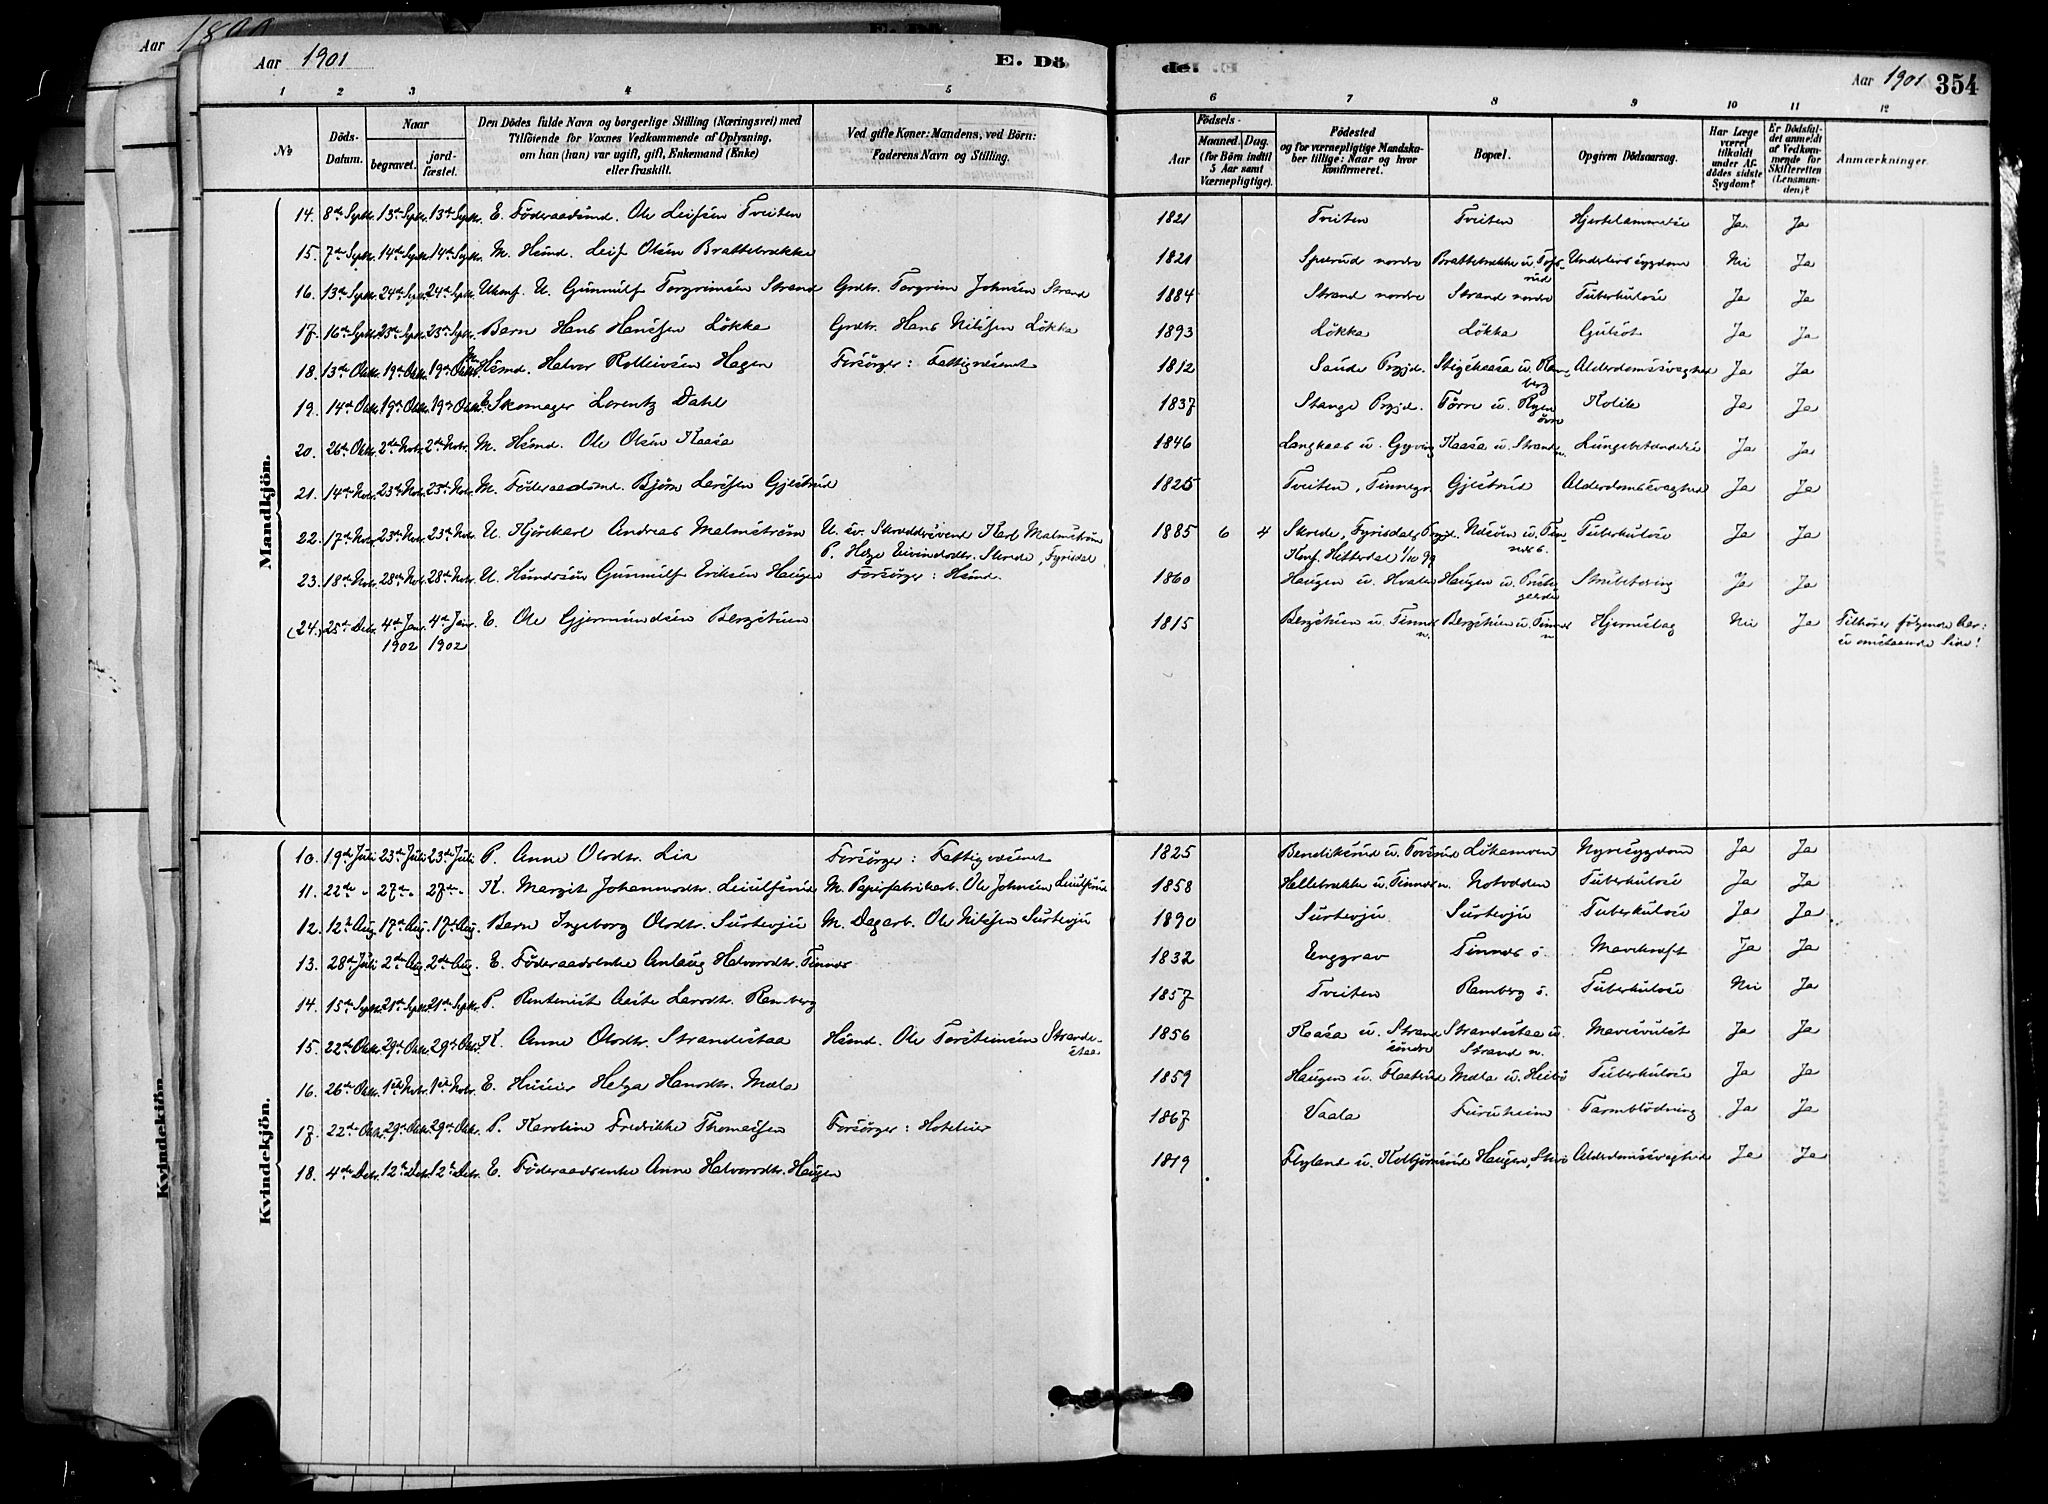 Aar 1890
Aar 1901
E. Dö
de.
Aar 1901
354
1 2 3 4 5 6 7 8 9 10 11 12
No
Döds-Datum.
Naar
begravet.
jord-fæstet.
Den Dödes fulde Navn og borgerlige Stilling (Næringsvei) med
Tilföiende for Voxnes Vedkommende af Oplysning,
om han (hun) var ugift, gift, Enkemand (Enke)
eller fraskilt.
Ved gifte Koner: Mandens, ved Börn:
Faderens Navn og Stilling.
Födsels-
Aar
Maaned. Dag.
(for Börn indtil
5 Aar samt
Værnepligtige).
Födested
og for værnepligtige Mandska-
ber tillige: Naar og hvor
konfirmeret.
Bopæl.
Opgiven Dödsaarsag.
Har Læge
været
tilkaldt
under Af-
dödes sidste
Sygdom?
Er Dödsfal-
det anmeldt
af Vedkom-
mende for
Skifteretten
(Lensman-
den)?
Anmærkninger.
Mandkjön.
14. 8de Septr. 13de Septr. 13de Septr. E. Föderaadsmd. Ole Leifsen Tveiten 1821 Tveiten Tveiten Hjertelammelse Ja Ja
15. 7de Septr. 14de Septr. 14de Septr. M. Hsmd. Leif Olsen Brattebrække 1821 Sperud nordre Brattebrække u. Tofs-rud Underlivssygdom Nei Ja
16. 13de Septr. 24de Septr. 24de Septr. Ukonf. U. Gunnulf Torgrimsen Strand Grdbr. Torgrim Johnsen Strand 1884 Strand nordre Strand nordre Tuberkulose Ja Ja
17. 16de Septr. 23de Septr. 23de Septr. Barn Hans Hansen Lökka Grdbr. Hans Nilssen Lökka 1893 Lökka Lökka Gulsot Ja Ja
18. 13de Oktr. 19de Oktr. 19de Oktr. Hsmd. Halvor Rolleivsen Hagen Forsörger: Fattigvæsenet 1812 Saude Prgjd. Stigekaasa u. Ram-berg Alderdomssvaghed Ja Ja
19. 14de Oktr. 19de Oktr. 19de Oktr. E. Skomager Lorentz Dahl 1837 Stange Prgjd. Törre u. Ryen Kolik Ja Ja
20. 26de Oktr. 2den Novr. 2den Novr. M. Hsmd. Ole Olsen Kaasa 1846 Langkaas u. Gyving Kaasa u. Strand n. Lungebetændelse Ja Ja
21. 14de Novr. 23de Novr. 23de Novr. M. Föderaadsmd. Björn Larssen Gjelstrud 1825 Tveiten, Tinnegr. Gjelstrud Alderdomssvaghed Ja Ja
22. 17de Novr. 23de Novr. 23de Novr. U. Kjörekarl Andreas Malmström U. sv. Skræddersvend Karl Malmström 1885 6 4 Skrede, Fyrisdals Prgjd. Tuberkulose Ja Ja
P. Helge Eivindsdtr. Skrede, Fyrisdal Konf. Hitterdal 1/10 99
23. 18de Novr. 28de Novr. 28de Novr. U. Husmdssön Gunnulf Eriksen Haugen Forsörger: Hsmd. 1860 Haugen u. Hvale Haugen u. Preste-gaarden Strubetæring Ja Ja
(24.) 25de Decr. 4de Janr. 1902 4de Janr. 1902 E. Ole Gjermundsen Bergstuen 1815 Bergstuen u. Tinnes n. Bergstuen u. Tinnes n. Hjerneslag Nei Ja Tilhörer fölgende Aar: u omstaaende Side!
Kvindekjön.
10. 19de Juli 23de Juli 23de Juli P. Anne Olsdtr. Lia Forsörger: Fattigvæsenet 1825 Bendiksrud u. Tovsrud Lökamoen Nyresygdom Ja Ja
11. 22de " 27de " 27de " K. Margit Johannesdtr. Leiulfsrud M. Papirfabrikarb. Ole Johnsen Leiulfsrud 1858 Hellebrække u. Tinnes n. Notodden Tuberkulose Ja Ja
12. 12te Aug. 17de Aug. 17de Aug. Barn Ingeborg Olsdtr. Surtevju M. Dagarb. Ole Nilssen Surtevju 1890 Surtevju Surtevju Tuberkulose Ja Ja
13. 28de Juli 2den Aug. 2den Aug. E. Föderaadsenke Anlaug Halvorsdtr. Tinnes 1832 Enggrav Tinnes s. Mavekræft Ja Ja
14. 15de Septr. 21de Septr. 21de Septr. P. Rentenist Aaste Larsdtr. Ramberg 1857 Tveiten Ramberg s. Tuberkulose Nei Ja
15. 22de Oktr. 29de Oktr. 29de Oktr. K. Anne Olsdtr. Strandestaa Hsmd. Ole Torsteinsen Strande-staa 1856 Kaasa u. Strand söndre Strandestaa u. Strand n. Mavesvulst Ja Ja
16. 26de Oktr. 1ste Novr. 1ste Novr. E. Huseier Helga Hansdtr. Mæla 1859 Haugen u. Flaatrud Mæla u. Heibö Tuberkulose Ja Ja
17. 22de Oktr. 29de Oktr. 29de Oktr. P. Karoline Fredrikke Thomassen Forsörger: Hoteleier 1867 Vaala Furuheim Tarmblödning Ja Ja
18. 4de Decr. 12te Decr. 12te Decr. E. Föderaadsenke Anne Halvorsdtr. Haugen 1819 Flyland u. Kolbjörnsrud Haugen, Alderdomssvaghed Ja Ja
Kvindekjön